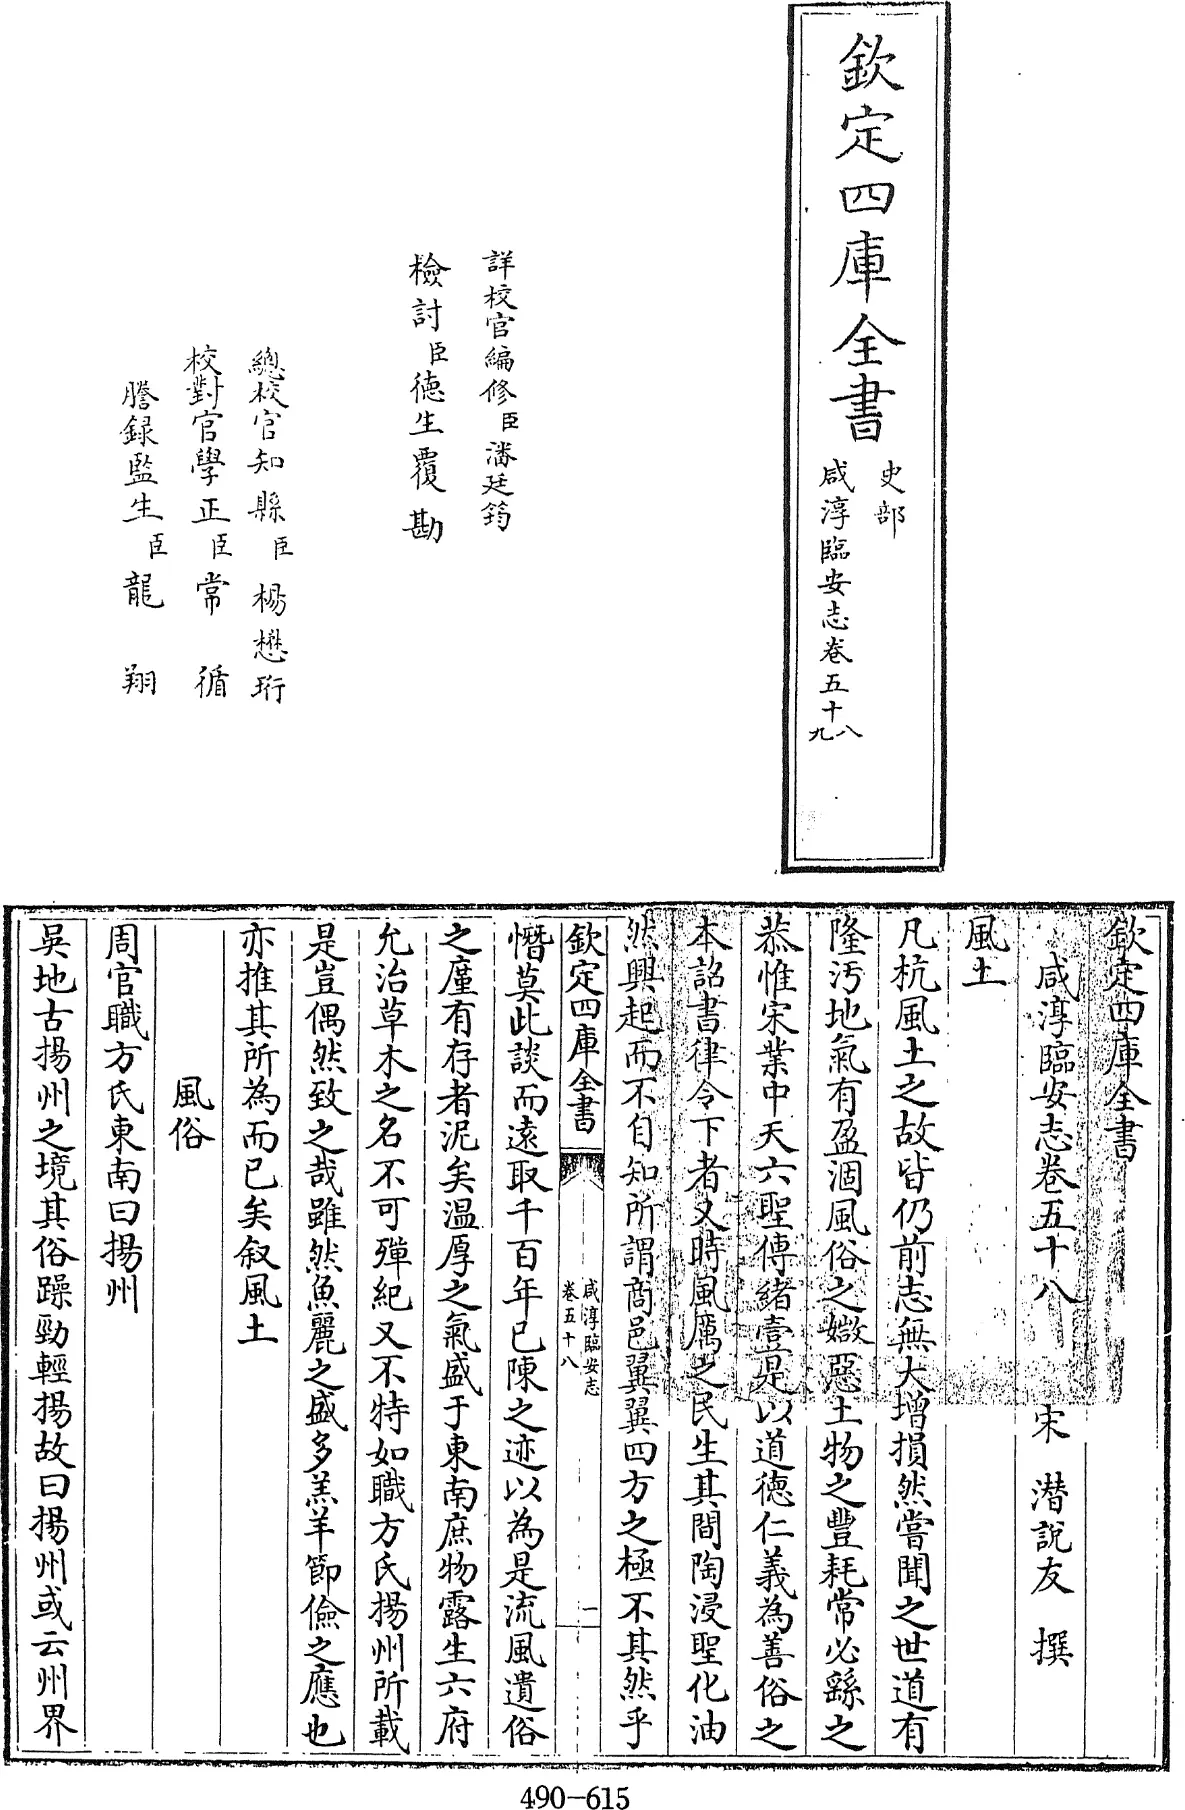 欽定四庫全書
史部
咸淳臨安志卷五十八
九
詳校官編修臣潘廷筠
檢討臣德生覆勘
總校官知縣臣楊懋珩
校對官學正臣常循
謄錄監生臣龍翔
欽定四庫全書
咸淳臨安志卷五十八
宋 潛說友 撰
風土
凡杭風土之故皆仍前志無大增損然嘗聞之世道有
隆汚地氣有盈涸風俗之媺惡土物之豐耗常必繇之
恭惟宋業中天六聖傳緒壹是以道德仁義為善俗之
本詔書律令下者又時風厲之民生其間陶浸聖化油
然興起而不自知所謂商邑翼翼四方之極不其然乎
欽定四庫全書
咸淳臨安志
卷五十八
一
憯莫此談而遠取千百年已陳之迹以為是流風遺俗
之廑有存者泥矣溫厚之氣盛于東南庶物露生六府
允治草木之名不可殫紀又不特如職方氏揚州所載
是豈偶然致之哉雖然魚麗之盛多羔羊節儉之應也
亦推其所為而已矣叙風土
風俗
周官職方氏東南曰揚州
吳地古揚州之境其俗躁勁輕揚故曰揚州或云州界
490-615